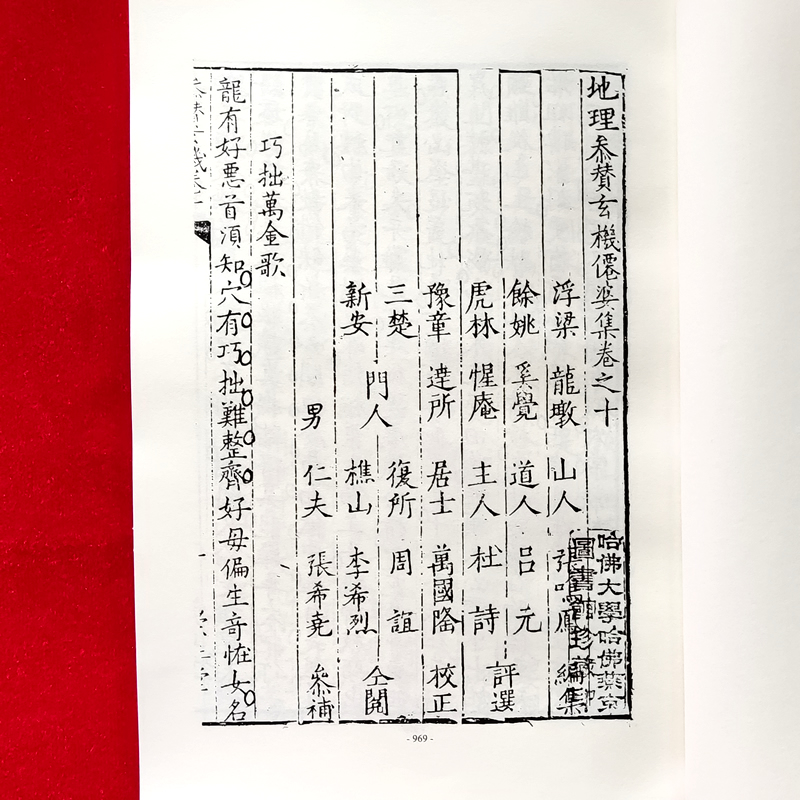 地理叅賛玄機僊婆集卷之十
浮梁 龍墩 山人 張 鳳 編集
餘姚 奚覺 道人 吕元 評選
虎林 惺庵 主人 杜詩
豫章 達所 居士 萬國隆 校正
三楚 門人 復所 周誼 仝閱
新安 樵山 李希烈
男 仁夫 張希堯 叅補
巧拙萬金歌
龍有好惡首須知穴有巧拙難整齊好母偏生竒恠女名
哈佛大學哈佛燕京
圖書館珍藏印
- 969 -